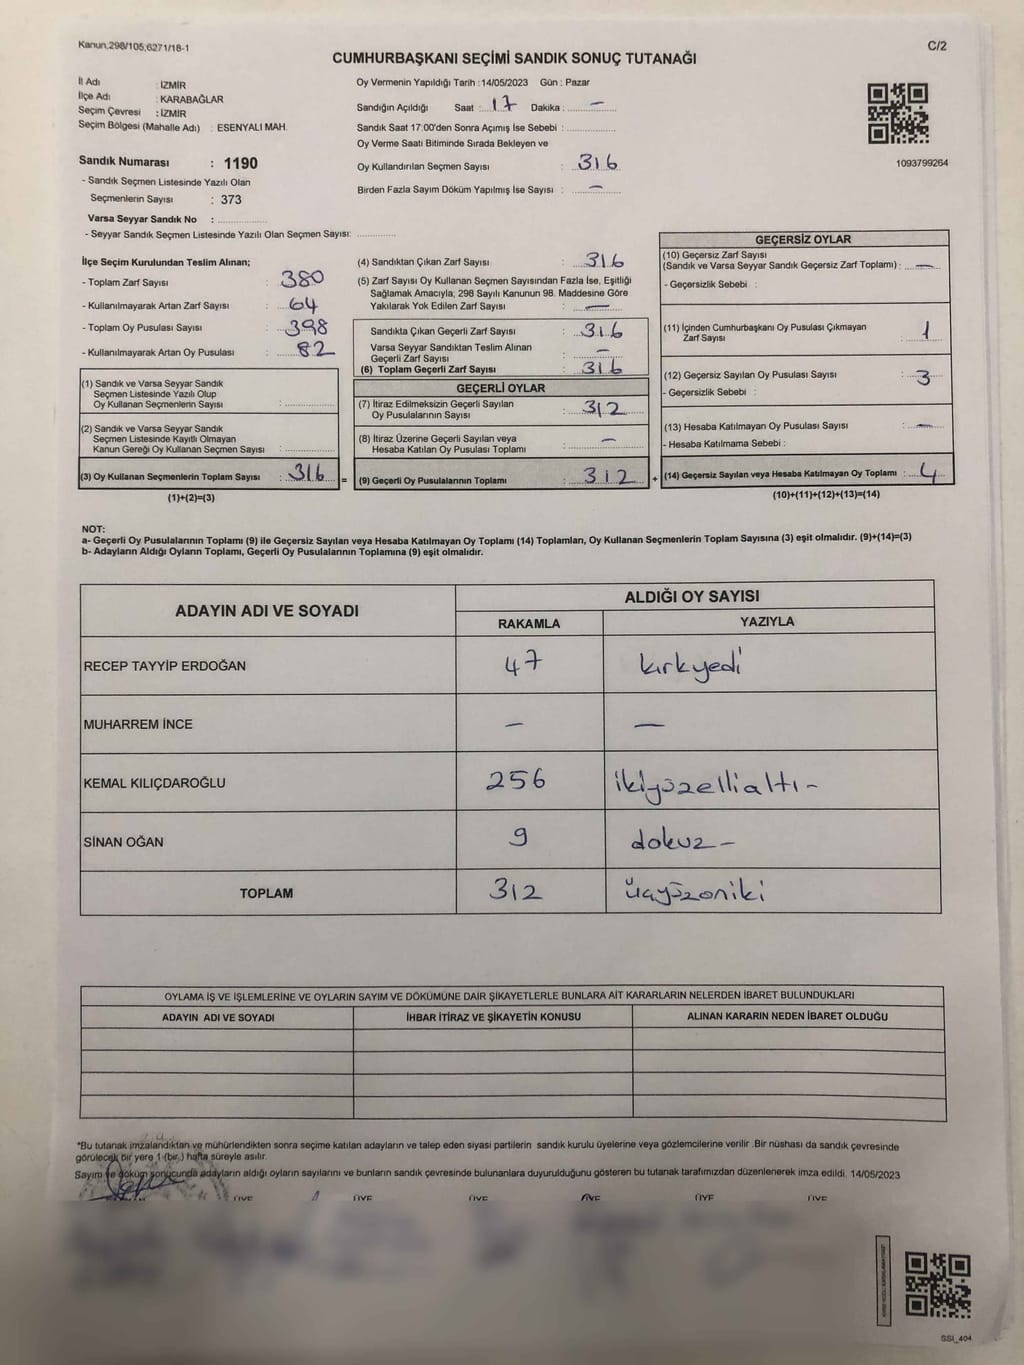 Kanun,298/105,6271/18-1
C/2
CUMHURBAŞKANI SEÇİMİ SANDIK SONUÇ TUTANAĞI
İl Adı : İZMİR
İlçe Adı : KARABAĞLAR
Seçim Çevresi : İZMİR
Seçim Bölgesi (Mahalle Adı) : ESENYALI MAH.
Sandık Numarası : 1190
- Sandık Seçmen Listesinde Yazılı Olan
Seçmenlerin Sayısı : 373
Varsa Seyyar Sandık No :
- Seyyar Sandık Seçmen Listesinde Yazılı Olan Seçmen Sayısı:
Oy Vermenin Yapıldığı Tarih : 14/05/2023 Gün : Pazar
Sandığın Açıldığı Saat : 17 Dakika : -
Sandık Saat 17:00'den Sonra Açımış İse Sebebi :
Oy Verme Saati Bitiminde Sırada Bekleyen ve
Oy Kullandırılan Seçmen Sayısı : 316
Birden Fazla Sayım Döküm Yapılmış İse Sayısı : -
1093799264
İlçe Seçim Kurulundan Teslim Alınan;
- Toplam Zarf Sayısı : 380
- Kullanılmayarak Artan Zarf Sayısı : 64
- Toplam Oy Pusulası Sayısı : 398
- Kullanılmayarak Artan Oy Pusulası : 82
(1) Sandık ve Varsa Seyyar Sandık
Seçmen Listesinde Yazılı Olup
Oy Kullanan Seçmenlerin Sayısı :
(2) Sandık ve Varsa Seyyar Sandık
Seçmen Listesinde Kayıtlı Olmayan
Kanun Gereği Oy Kullanan Seçmen Sayısı :
(3) Oy Kullanan Seçmenlerin Toplam Sayısı : 316 =
(1)+(2)=(3)
(4) Sandıktan Çıkan Zarf Sayısı : 316
(5) Zarf Sayısı Oy Kullanan Seçmen Sayısından Fazla İse, Eşitliği
Sağlamak Amacıyla, 298 Sayılı Kanunun 98. Maddesine Göre
Yakılarak Yok Edilen Zarf Sayısı : -
Sandıkta Çıkan Geçerli Zarf Sayısı : 316
Varsa Seyyar Sandıktan Teslim Alınan
Geçerli Zarf Sayısı : -
(6) Toplam Geçerli Zarf Sayısı : 316
GEÇERLİ OYLAR
(7) İtiraz Edilmeksizin Geçerli Sayılan
Oy Pusulalarının Sayısı : 312
(8) İtiraz Üzerine Geçerli Sayılan veya
Hesaba Katılan Oy Pusulası Toplamı : -
(9) Geçerli Oy Pusulalarının Toplamı : 312 +
GEÇERSİZ OYLAR
(10) Geçersiz Zarf Sayısı
(Sandık ve Varsa Seyyar Sandık Geçersiz Zarf Toplamı) : -
- Geçersizlik Sebebi :
(11) İçinden Cumhurbaşkanı Oy Pusulası Çıkmayan
Zarf Sayısı : 1
(12) Geçersiz Sayılan Oy Pusulası Sayısı : 3
- Geçersizlik Sebebi :
(13) Hesaba Katılmayan Oy Pusulası Sayısı : -
- Hesaba Katılmama Sebebi :
(14) Geçersiz Sayılan veya Hesaba Katılmayan Oy Toplamı : 4
(10)+(11)+(12)+(13)=(14)
NOT:
a- Geçerli Oy Pusulalarının Toplamı (9) ile Geçersiz Sayılan veya Hesaba Katılmayan Oy Toplamı (14) Toplamları, Oy Kullanan Seçmenlerin Toplam Sayısına (3) eşit olmalıdır. (9)+(14)=(3)
b- Adayların Aldığı Oyların Toplamı, Geçerli Oy Pusulalarının Toplamına (9) eşit olmalıdır.
ADAYIN ADI VE SOYADI
ALDIĞI OY SAYISI
RAKAMLA YAZIYLA
RECEP TAYYİP ERDOĞAN 47 kırkyedi
MUHARREM İNCE - -
KEMAL KILIÇDAROĞLU 256 ikiyüzellialtı -
SİNAN OĞAN 9 dokuz -
TOPLAM 312 üçyüzoniki
OYLAMA İŞ VE İŞLEMLERİNE VE OYLARIN SAYIM VE DÖKÜMÜNE DAİR ŞİKAYETLERLE BUNLARA AİT KARARLARIN NELERDEN İBARET BULUNDUKLARI
ADAYIN ADI VE SOYADI İHBAR İTİRAZ VE ŞİKAYETİN KONUSU ALINAN KARARIN NEDEN İBARET OLDUĞU
*Bu tutanak imzalandıktan ve mühürlendikten sonra seçime katılan adayların ve talep eden siyasi partilerin sandık kurulu üyelerine veya gözlemcilerine verilir .Bir nüshası da sandık çevresinde
görülecek bir yere 1 (bir ) hafta süreyle asılır.
Sayım ve döküm sonucunda adayların aldığı oyların sayılarını ve bunların sandık çevresinde bulunanlara duyurulduğunu gösteren bu tutanak tarafımızdan düzenlenerek imza edildi. 14/05/2023
ÜYE ÜYE ÜYE ÜYE ÜYE ÜYE
SSI_404